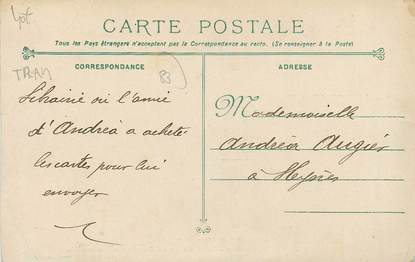 Lpt
CARTE POSTALE
Tous les Pays étrangers n'acceptent pas la Correspondance au recto. (Se renseigner à la Poste)
TRAM
83
CORRESPONDANCE
Librairie où l'amie
d'Andréa a acheté
les cartes pour lui
envoyer
ADRESSE
Mademoiselle
Andréa Augier
à Heyères